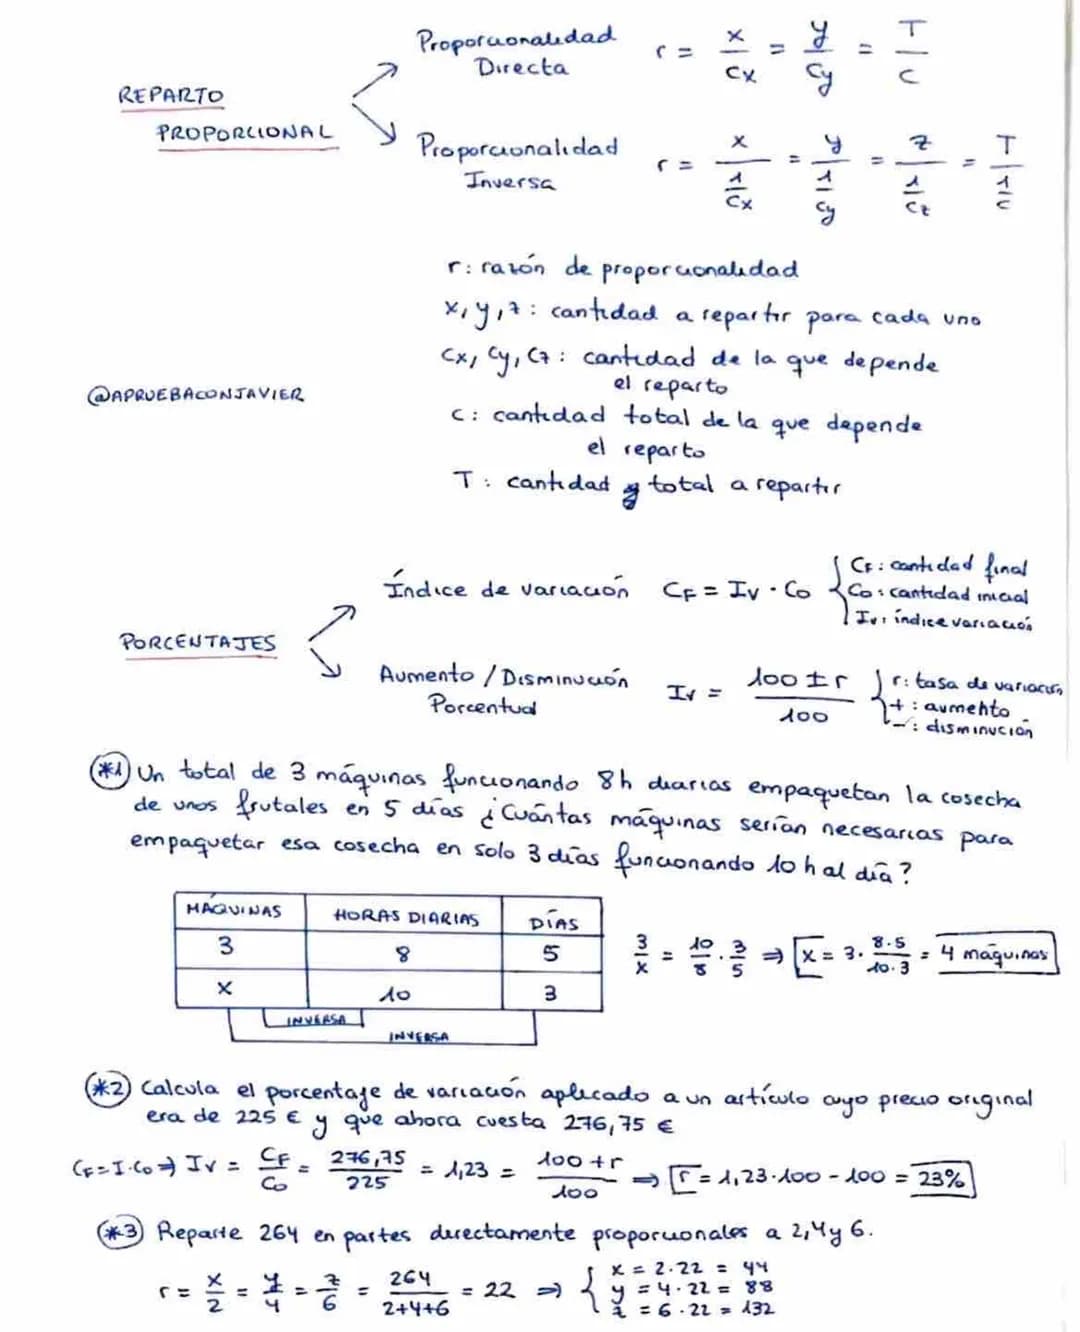 REPARTO PROPORCIONAL
Proporcionalidad Directa r = x/Cx = y/Cy = T/C
Proporcionalidad Inversa r = x/(1/Cx) = y/(1/Cy) = z/(1/Cz) = T/(1/C)
r: razón de proporcionalidad
x, y, z: cantidad a repartir para cada uno
Cx, Cy, Cz: cantidad de la que depende
el reparto
@APRUEBACONJAVIER
C: cantidad total de la que depende
el reparto
T: cantidad total a repartir
PORCENTAJES
Índice de variación CF = Iv · Co
CF: cantidad final
Co: cantidad inicial
Iv: índice variación
Aumento / Disminución
Porcentual
Iv = (100 ± r)/100
r: tasa de variación
+: aumento
-: disminución
*1 Un total de 3 máquinas funcionando 8h diarias empaquetan la cosecha
de unos frutales en 5 días ¿Cuántas máquinas serían necesarias para
empaquetar esa cosecha en solo 3 días funcionando 10 h al día?
MÁQUINAS HORAS DIARIAS DÍAS
3 8 5
x 10 3
INVERSA
INVERSA
3/x = 10/8 · 3/5 ⇒ x = 3 · (8·5)/(10·3) = 4 máquinas
*2 Calcula el porcentaje de variación aplicado a un artículo cuyo precio original
era de 225 € y que ahora cuesta 276,75 €
CF = I·Co ⇒ Iv = CF/Co = 276,75/225 = 1,23 = (100 + r)/100 ⇒ r = 1,23·100 - 100 = 23%
*3 Reparte 264 en partes directamente proporcionales a 2, 4 y 6.
r = x/2 = y/4 = z/6 = 264/(2+4+6) = 22 ⇒
x = 2·22 = 44
y = 4·22 = 88
z = 6·22 = 132